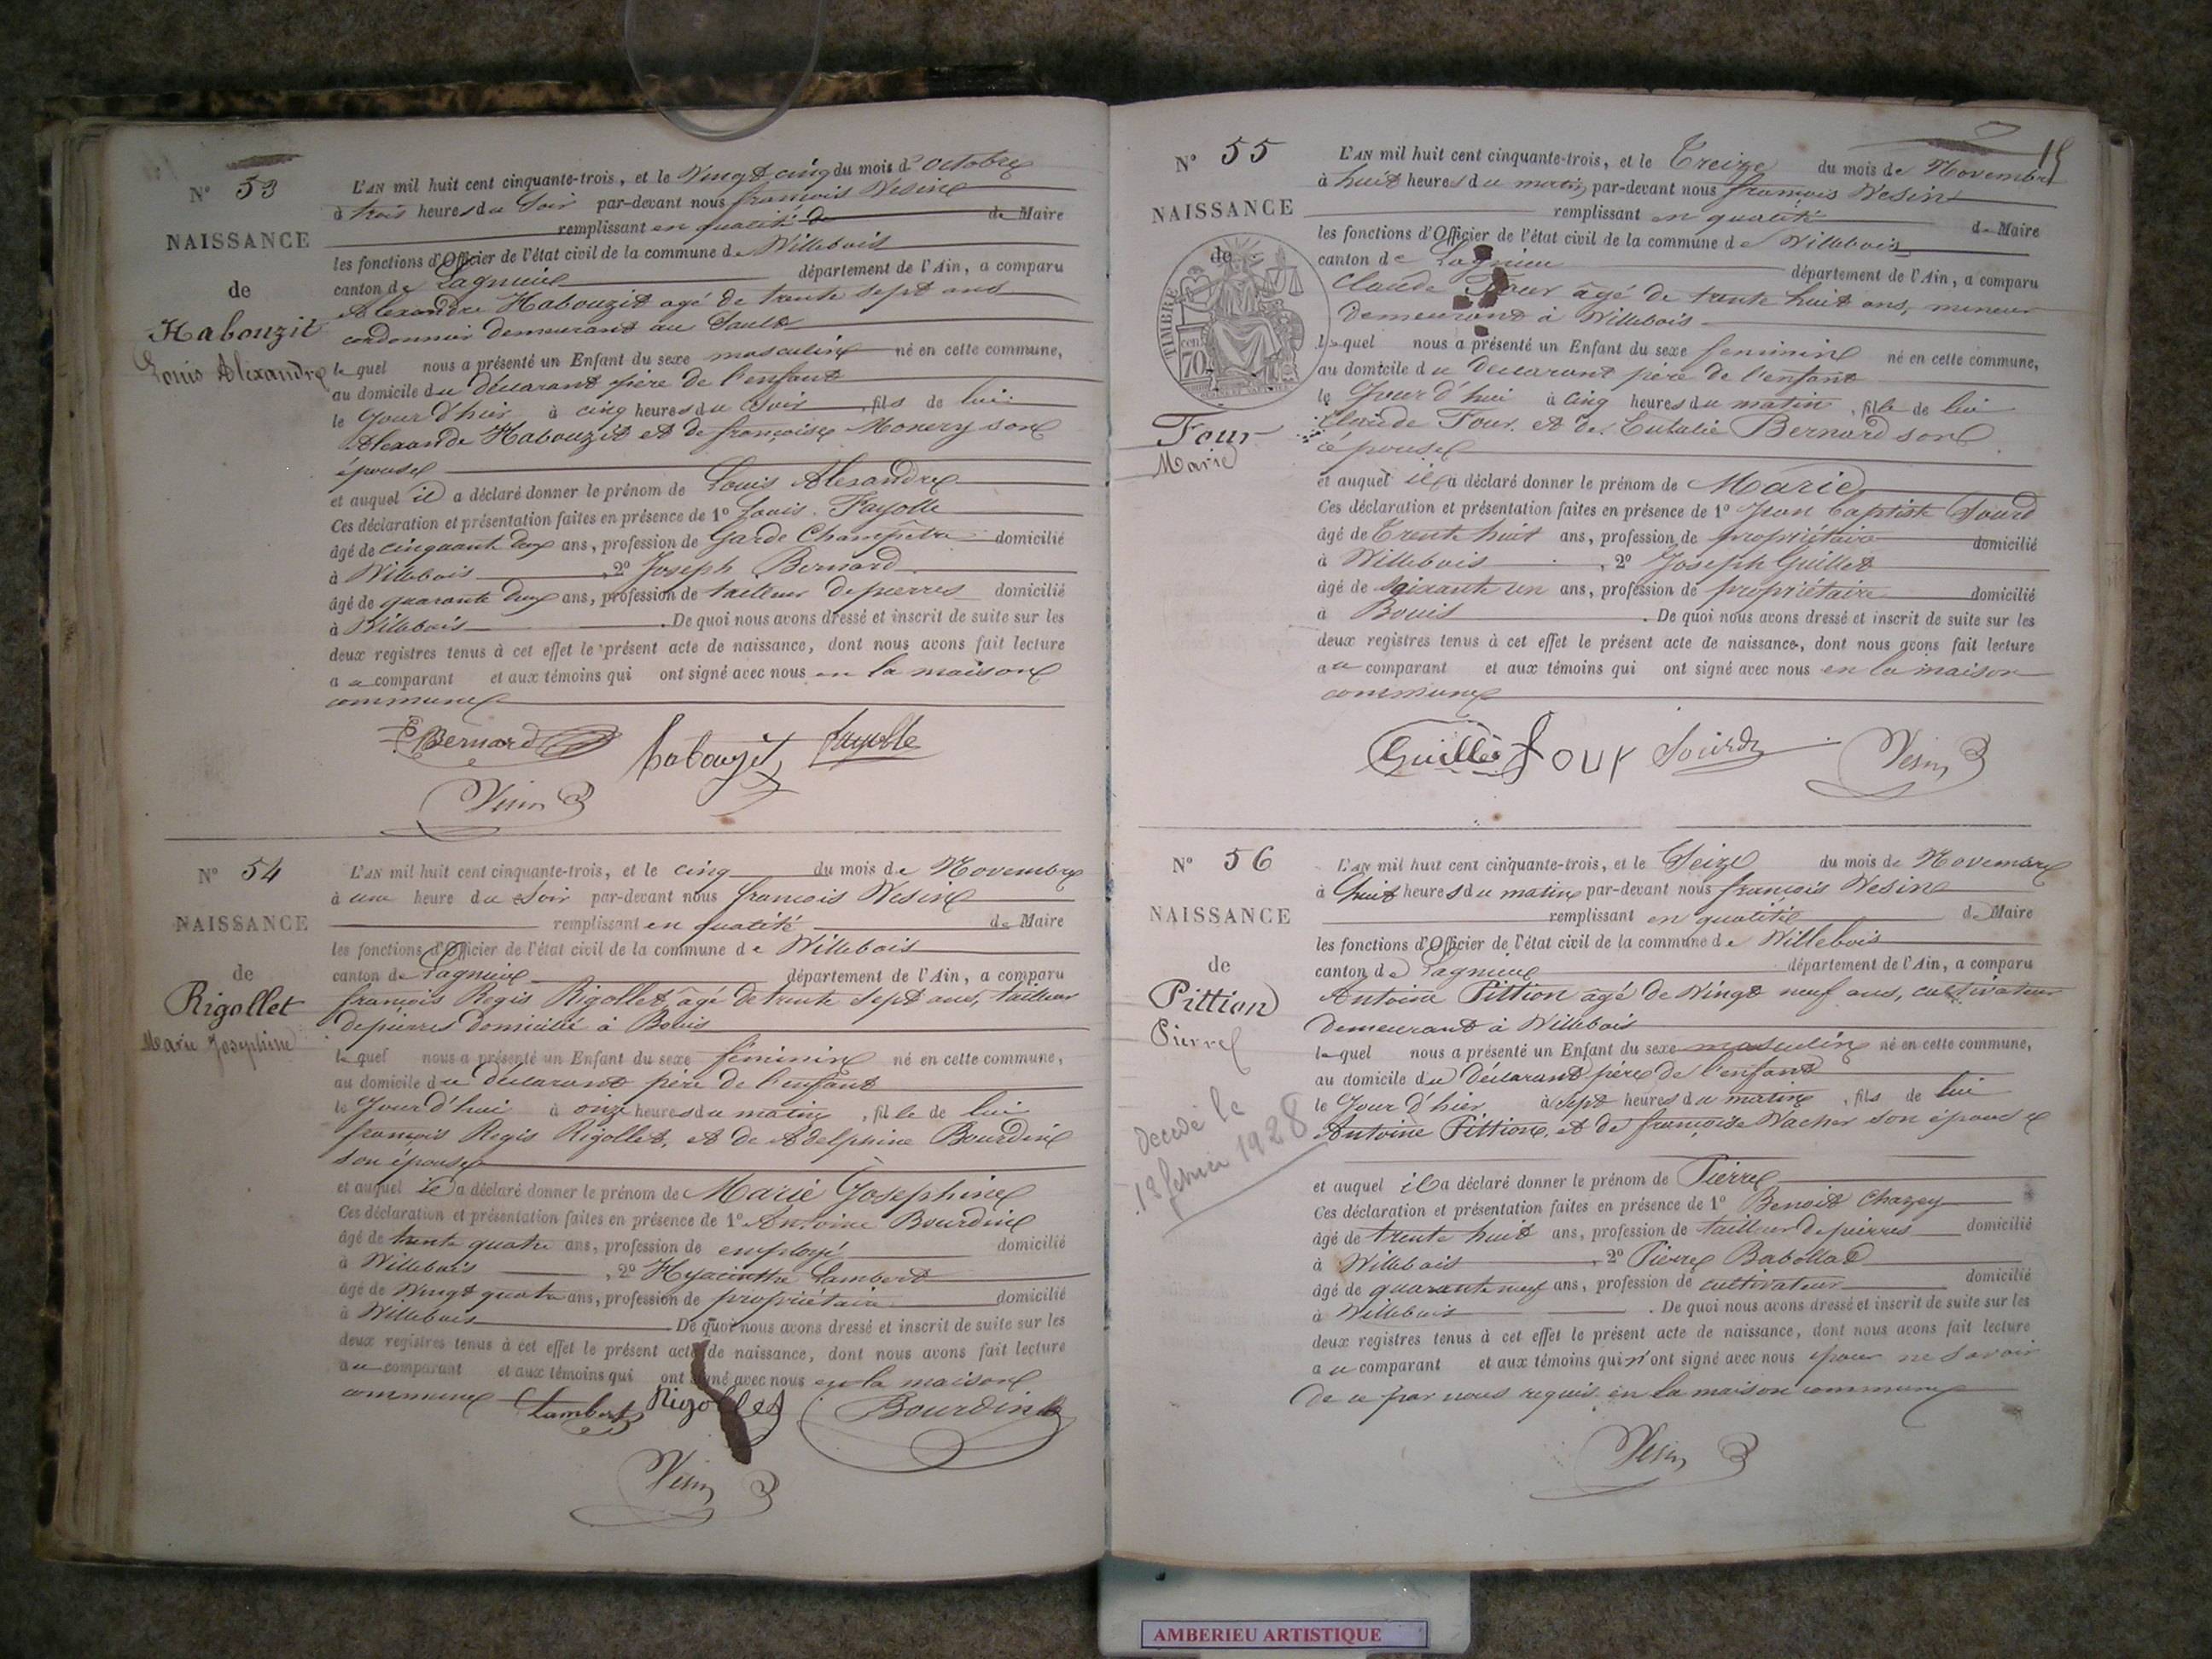 N° 53
NAISSANCE
de
Habouzit
Louis Alexandre
L'AN mil huit cent cinquante-trois, et le Vingt cinq du mois d'octobre
à trois heures du Soir par-devant nous françois Vesin
remplissant en qualité de de Maire
les fonctions d'Officier de l'état civil de la commune de Villebois
canton de Lagnieu département de l'Ain, a comparu
Alexandre Habouzit agé de trente sept ans
cordonnier demeurant au Sault
lequel nous a présenté un Enfant du sexe masculin né en cette commune,
au domicile du déclarant père de l'enfant
le Jour d'hier à cinq heures du Soir, fils de lui
Alexandre Habouzit et de françoise Monery son
épouse
et auquel il a déclaré donner le prénom de Louis Alexandre
Ces déclaration et présentation faites en présence de 1° Louis Fayolle
âgé de cinquante deux ans, profession de Garde Champêtre domicilié
à Villebois, 2° Joseph Bernard
âgé de quarante deux ans, profession de tailleur de pierres domicilié
à Villebois. De quoi nous avons dressé et inscrit de suite sur les
deux registres tenus à cet effet le présent acte de naissance, dont nous avons fait lecture
au comparant et aux témoins qui ont signé avec nous en la maison
commune
Bernard habouzit fayolle
Vesin
N° 54
NAISSANCE
de
Rigollet
Marie Josephine
L'AN mil huit cent cinquante-trois, et le cinq du mois de Novembre
à une heure du Soir par-devant nous françois Vesin
remplissant en qualité de Maire
les fonctions d'Officier de l'état civil de la commune de Villebois
canton de Lagnieu département de l'Ain, a comparu
françois Regis Rigollet, âgé de trente sept ans, tailleur
de pierres domicilié à Bouis
lequel nous a présenté un Enfant du sexe féminin né en cette commune,
au domicile du déclarant père de l'enfant
le Jour d'hui à onze heures du matin, fille de lui
françois Regis Rigollet, et de Adelphine Bourdin
son épouse
et auquel il a déclaré donner le prénom de Marie Josephine
Ces déclaration et présentation faites en présence de 1° Antoine Bourdin
âgé de trente quatre ans, profession de employé domicilié
à Villebois, 2° Hyacinthe Lambert
âgé de Vingt quatre ans, profession de propriétaire domicilié
à Villebois. De quoi nous avons dressé et inscrit de suite sur les
deux registres tenus à cet effet le présent acte de naissance, dont nous avons fait lecture
au comparant et aux témoins qui ont signé avec nous en la maison
commune Lambert Rigollet Bourdin
Vesin
15
N° 55
NAISSANCE
de
TIMBRE
70
Four
Marie
L'AN mil huit cent cinquante-trois, et le Treize du mois de Novembre
à huit heures du matin, par-devant nous françois Vesin
remplissant en qualité de Maire
les fonctions d'Officier de l'état civil de la commune de Villebois
canton de Lagnieu département de l'Ain, a comparu
Claude Four âgé de trente huit ans, mineur
Demeurant à Villebois
lequel nous a présenté un Enfant du sexe feminin né en cette commune,
au domicile du declarant père de l'enfant
le Jour d'hui à cinq heures du matin, fille de lui
Claude Four. et de Eulalie Bernard son
épouse
et auquel il a déclaré donner le prénom de Marie
Ces déclaration et présentation faites en présence de 1° Jean Baptiste Sourd
âgé de Trente huit ans, profession de propriétaire domicilié
à Villebois, 2° Joseph Guillet
âgé de soixante un ans, profession de propriétaire domicilié
à Bouis. De quoi nous avons dressé et inscrit de suite sur les
deux registres tenus à cet effet le présent acte de naissance, dont nous avons fait lecture
au comparant et aux témoins qui ont signé avec nous en la maison
commune
Guillet four Sourd Vesin
N° 56
NAISSANCE
de
Pittion
Pierre
Decede le
13 fevrier 1928
L'AN mil huit cent cinquante-trois, et le Seize du mois de Novembre
à huit heures du matin par-devant nous françois Vesin
remplissant en qualité de Maire
les fonctions d'Officier de l'état civil de la commune de Villebois
canton de Lagnieu département de l'Ain, a comparu
Antoine Pittion âgé de Vingt neuf ans, cultivateur
Demeurant à Villebois
lequel nous a présenté un Enfant du sexe masculin né en cette commune,
au domicile du Déclarant père de l'enfant
le Jour d'hier à sept heures du matin, fils de lui
Antoine Pittion, et de françoise Vacher son épouse
et auquel il a déclaré donner le prénom de Pierre
Ces déclaration et présentation faites en présence de 1° Benoit Chazey
âgé de trente huit ans, profession de tailleur de pierres domicilié
à Villebois, 2° Pierre Babollat
âgé de quarante neuf ans, profession de cultivateur domicilié
à Villebois. De quoi nous avons dressé et inscrit de suite sur les
deux registres tenus à cet effet le présent acte de naissance, dont nous avons fait lecture
au comparant et aux témoins qui n'ont signé avec nous pour ne savoir
de ce par nous requis en la maison commune
Vesin
AMBERIEU ARTISTIQUE